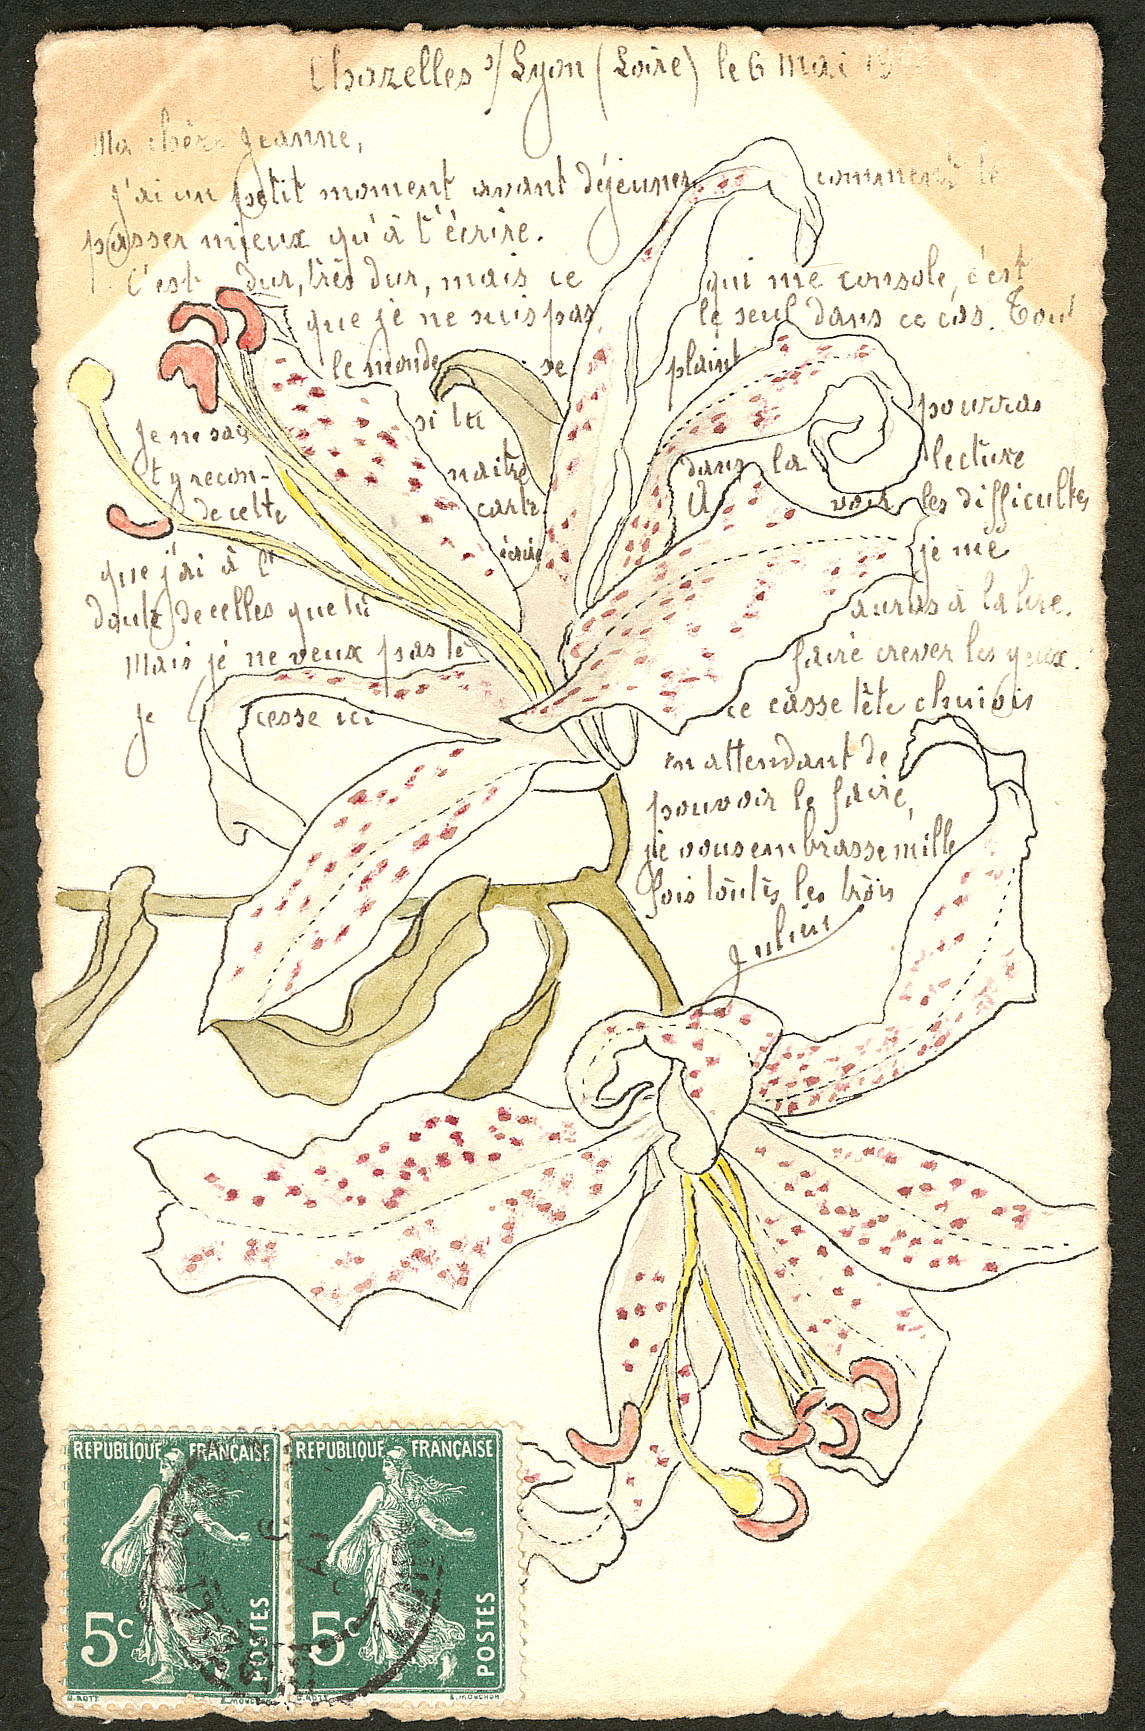 Chazelles s/ Lyon (Loire) le 6 Mai 19
Ma chère Jeanne,
J'ai un petit moment avant déjeuner comment le
passer mieux qu'à t'écrire.
C'est dur, très dur, mais ce qui me console, c'est
que je ne suis pas le seul dans ce cas. Tout
le monde se plaint
Je ne sais si tu pourras
t'y recon- naitre dans la lecture
de cette carte. A voir les difficultés
que j'ai à l' écrire je me
doute de celles que tu auras à la lire.
Mais je ne veux pas te faire crever les yeux.
Je cesse ici ce casse tête chinois
en attendant de
pouvoir le faire,
je vous embrasse mille
fois toutes les trois
Julien
REPUBLIQUE FRANÇAISE REPUBLIQUE FRANÇAISE
5c POSTES 5c POSTES